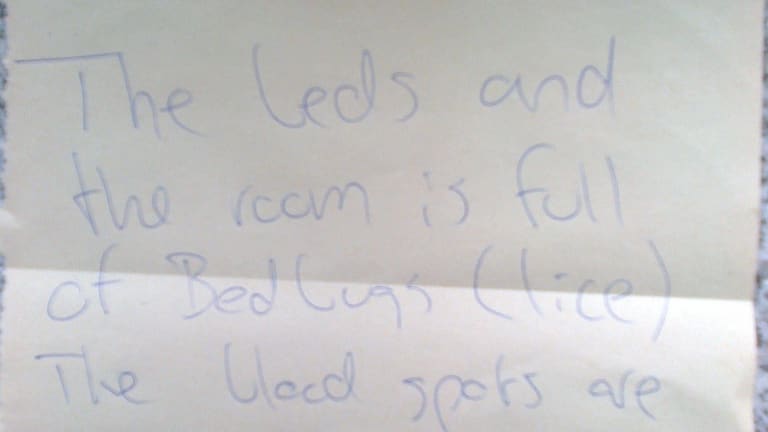 The beds and
the room is full
of Bedbugs (lice)
The blood spots are